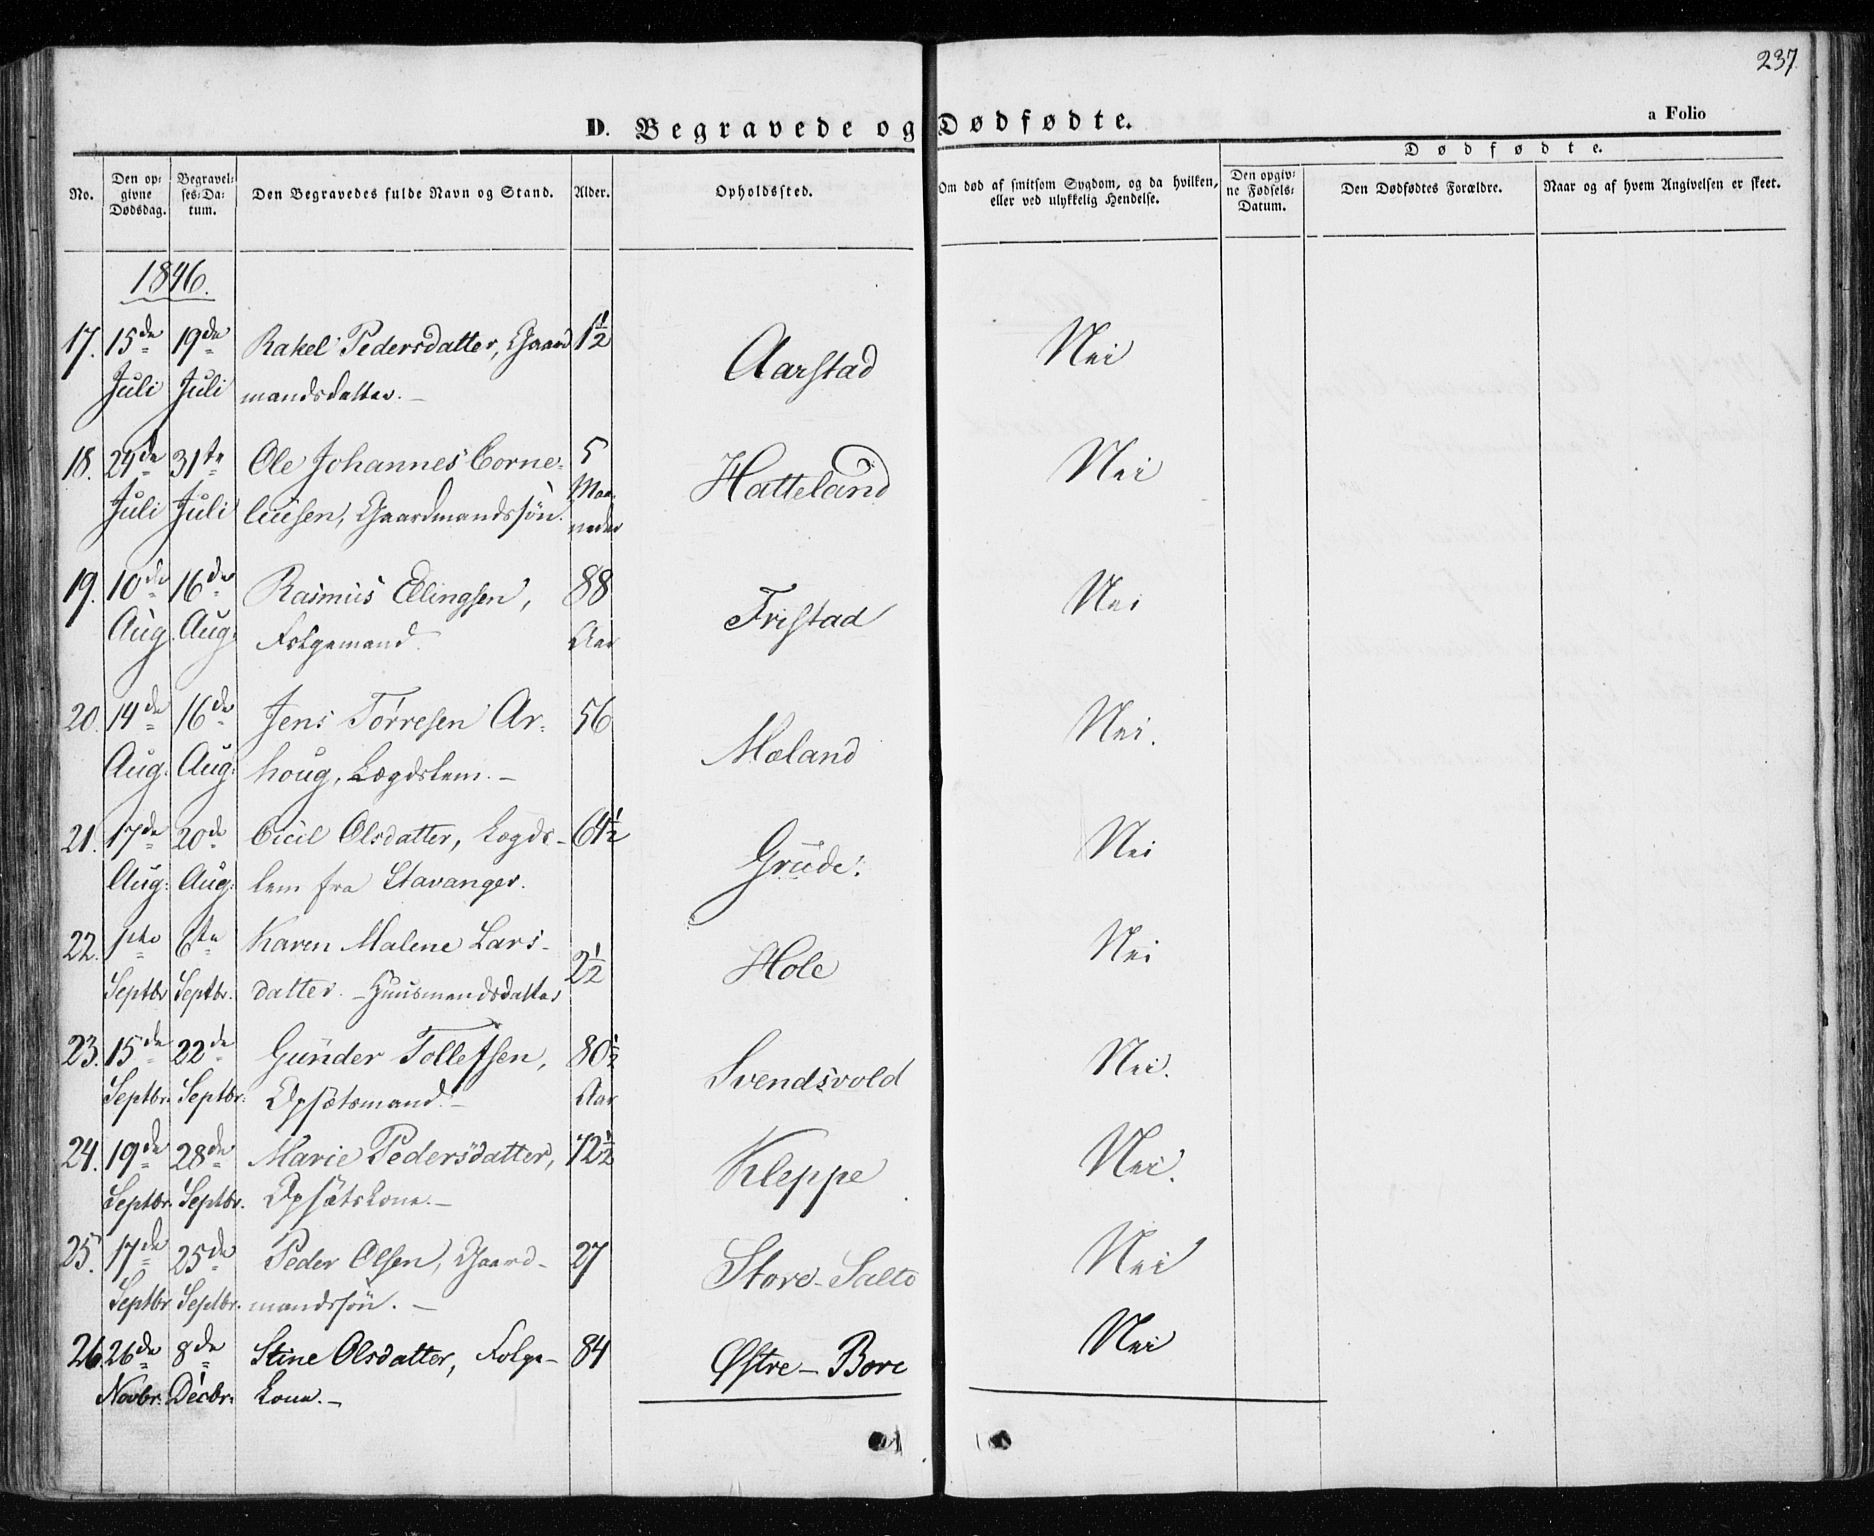 237.
D. Begravede og Dødfødte.
a Folio
Dødfødte.
No.
Den opgivne Dødsdag.
Begravelses-Datum.
Den Begravedes fulde Navn og Stand.
Alder.
Opholdssted.
Om død af smitsom Sygdom, og da hvilken, eller ved ulykkelig Hendelse.
Den opgivne Fødsels-Datum.
Den Dødfødtes Forældre.
Naar og af hvem Angivelsen er skeet.
1846.
17. 15de 19de Rakel Pedersdatter, Gaard 1½ Aarstad Nei
Juli Juli mandsdatter. –
18. 24de 31te Ole Johannes Corne- 5 Hatteland Nei
Juli Juli liusen, Gaardmandssøn. Maa-
neder
19. 10de 16de Rasmus Ellingsen, 88 Fristad Nei
Aug. Aug: Folgemand. Aar
20. 14de 16de Jens Tørresen Ar- 56 Mæland Nei.
Aug. Aug: houg, Lægdslem. –
21. 17de 20de Cicil Olsdatter, Lægds- 64½ Grude. Nei
Aug: Aug: lem fra Stavanger.
22. 1ste 6te Karen Malene Lars- 2½ Hole Nei
Septbr Septbr. datter. – Huusmandsdatter
23. 15de 22de Gunder Tollefsen, 80½ Svendsvold Nei.
Septbr. Septbr. Opsætsmand. – Aar
24. 19de 28de Marie Pedersdatter, 72½ Kleppe Nei.
Septbr. Septbr. Opsætskone. –
25. 17de 25de Peder Olsen, Gaard- 27 Store-Salte Nei
Septbr Septbr. mandssøn. –
26. 26de 8de Stine Olsdatter, Folge- 84 Østre-Bore Nei
Novbr. Decbr. kone. –